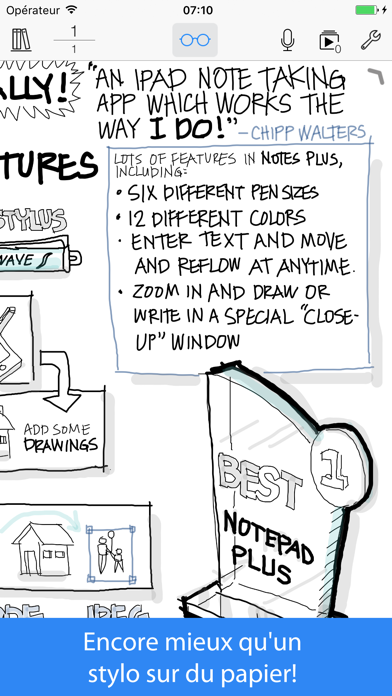 Opérateur 07:10
1
1
0
ALLY!
"AN IPAD NOTE TAKING
APP WHICH WORKS THE
WAY I DO!"
— CHIPP WALTERS
TURES
LOTS OF FEATURES IN NOTES PLUS,
INCLUDING:
• SIX DIFFERENT PEN SIZES
• 12 DIFFERENT COLORS
• ENTER TEXT AND MOVE
AND REFLOW AT ANYTIME.
• ZOOM IN AND DRAW OR
WRITE IN A SPECIAL "CLOSE-
UP" WINDOW
STYLUS
WAVE
ADD SOME
DRAWINGS
BEST
1
NOTEPAD
PLUS
JPEG
Encore mieux qu'un
stylo sur du papier!